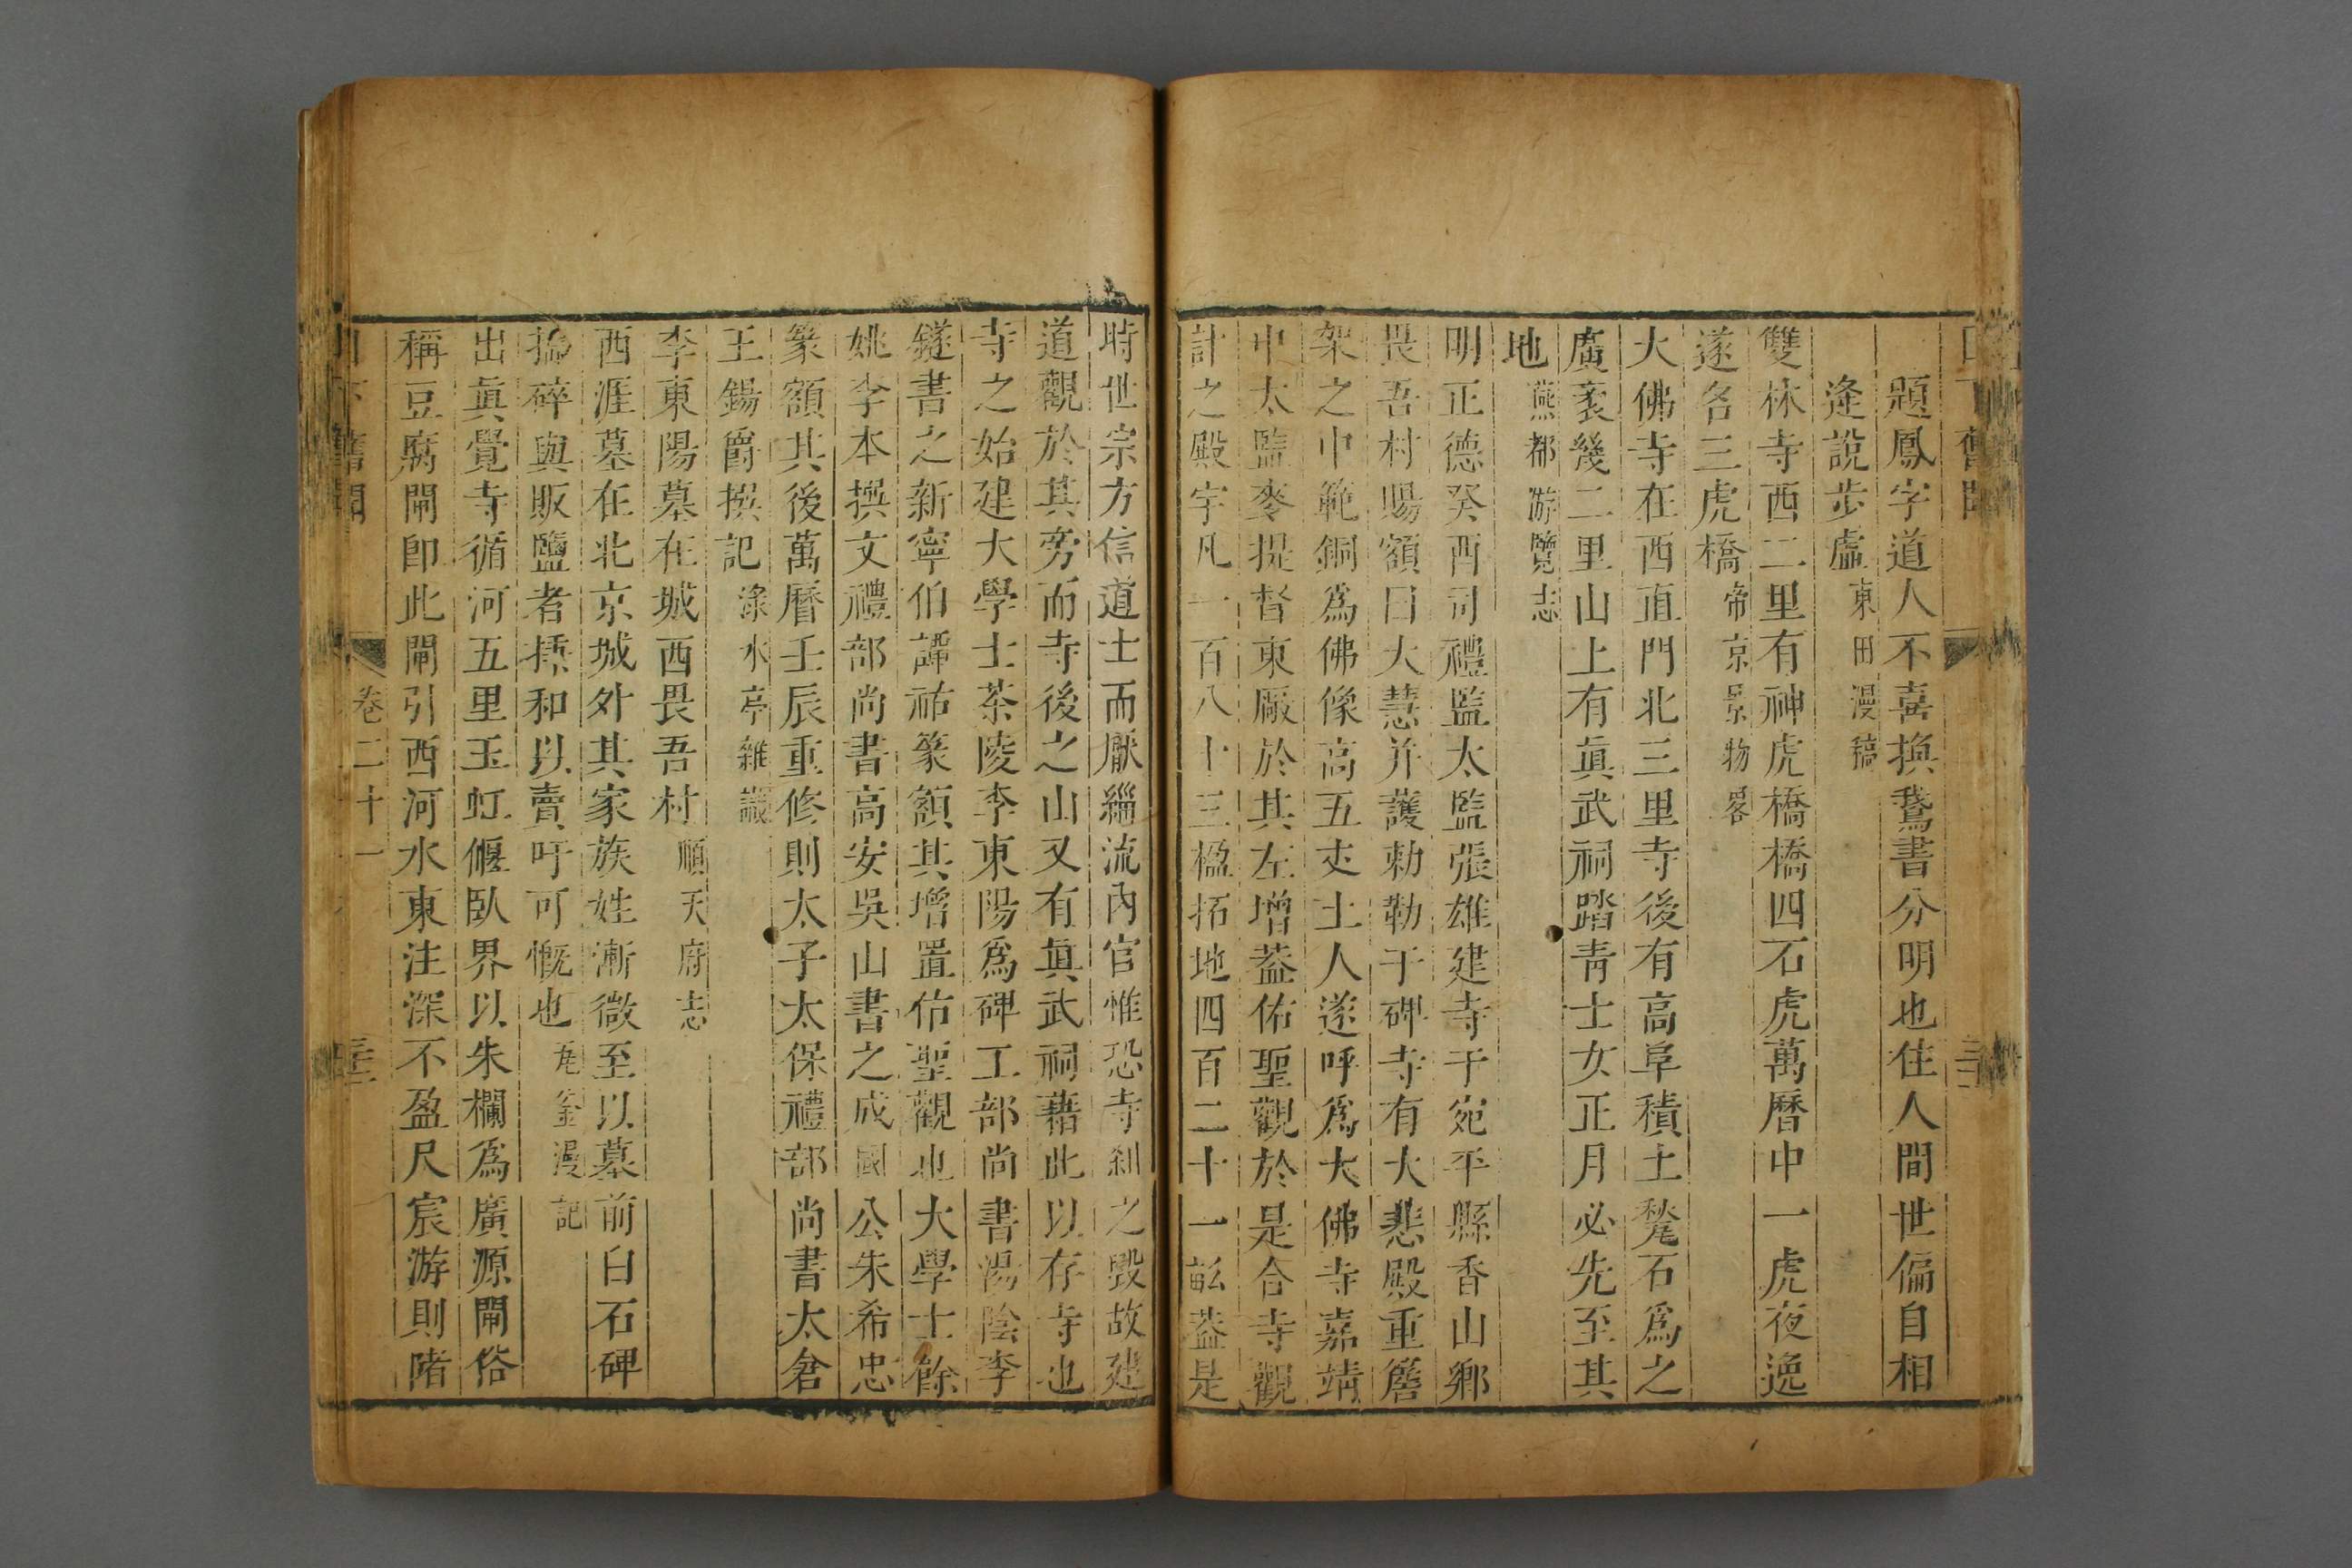 題鳳字道人不喜換鵞書分明也住人間世偏自相
逢說步虛東田漫稿
雙林寺西二里有神虎橋橋四石虎萬曆中一虎夜逸
遂名三虎橋帝京景物畧
大佛寺在西直門北三里寺後有高阜積土甃石爲之
廣袤幾二里山上有眞武祠踏靑士女正月必先至其
地燕都游覽志
明正德癸酉司禮監太監張雄建寺于宛平縣香山鄉
畏吾村賜額曰大慧并護勅勒于碑寺有大悲殿重簷
架之中範銅爲佛像高五丈土人遂呼爲大佛寺嘉靖
中太監麥提督東廠於其左增葢佑聖觀於是合寺觀
計之殿宇凡一百八十三楹拓地四百二十一畝葢是
時世宗方信道士而厭緇流內官惟恐寺刹之毀故建
道觀於其旁而寺後之山又有眞武祠藉此以存寺也
寺之始建大學士茶陵李東陽爲碑工部尚書湯陰李
鐩書之新寧伯譚祐篆額其增置佑聖觀也大學士餘
姚李本撰文禮部尚書高安吳山書之成國公朱希忠
篆額其後萬曆壬辰重修則太子太保禮部尚書太倉
王錫爵撰記淥水亭雜識
李東陽墓在城西畏吾村順天府志
西涯墓在北京城外其家族姓漸微至以墓前白石碑
搗碎與販鹽者攙和以賣吁可慨也瓦釜漫記
出眞覺寺循河五里玉虹偃臥界以朱欄爲廣源閘俗
稱豆腐閘卽此閘引西河水東注深不盈尺宸游則堵
日下舊聞
卷二十一